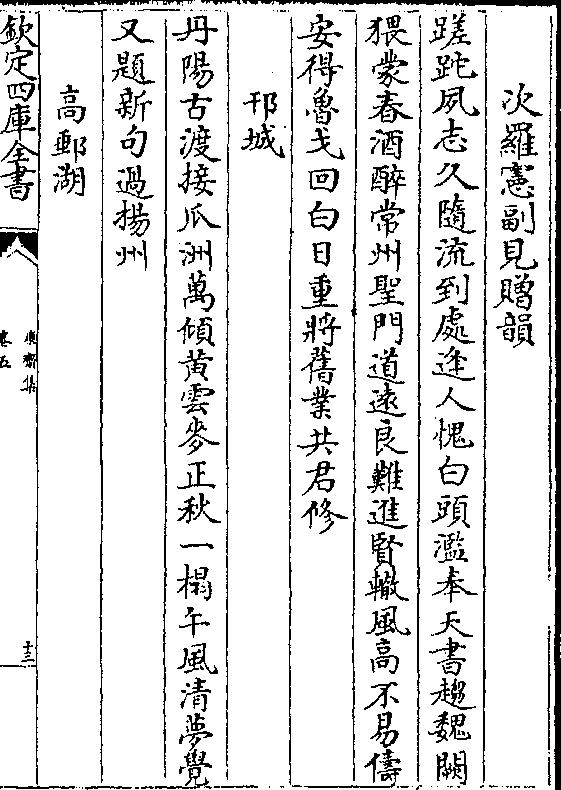 次羅憲副見贈韻
蹉跎夙志久隨流到處逢人愧白頭濫奉天書趨魏闕
猥蒙春酒醉常州聖門道遠良難進賢轍風高不易儔
安得魯戈回白日重將舊業共君修
邗城
丹陽古渡接瓜洲萬傾黄雲麥正秋一榻午風清夢覺
又題新句過揚州
高郵湖
欽定四庫全書
卷五
十三